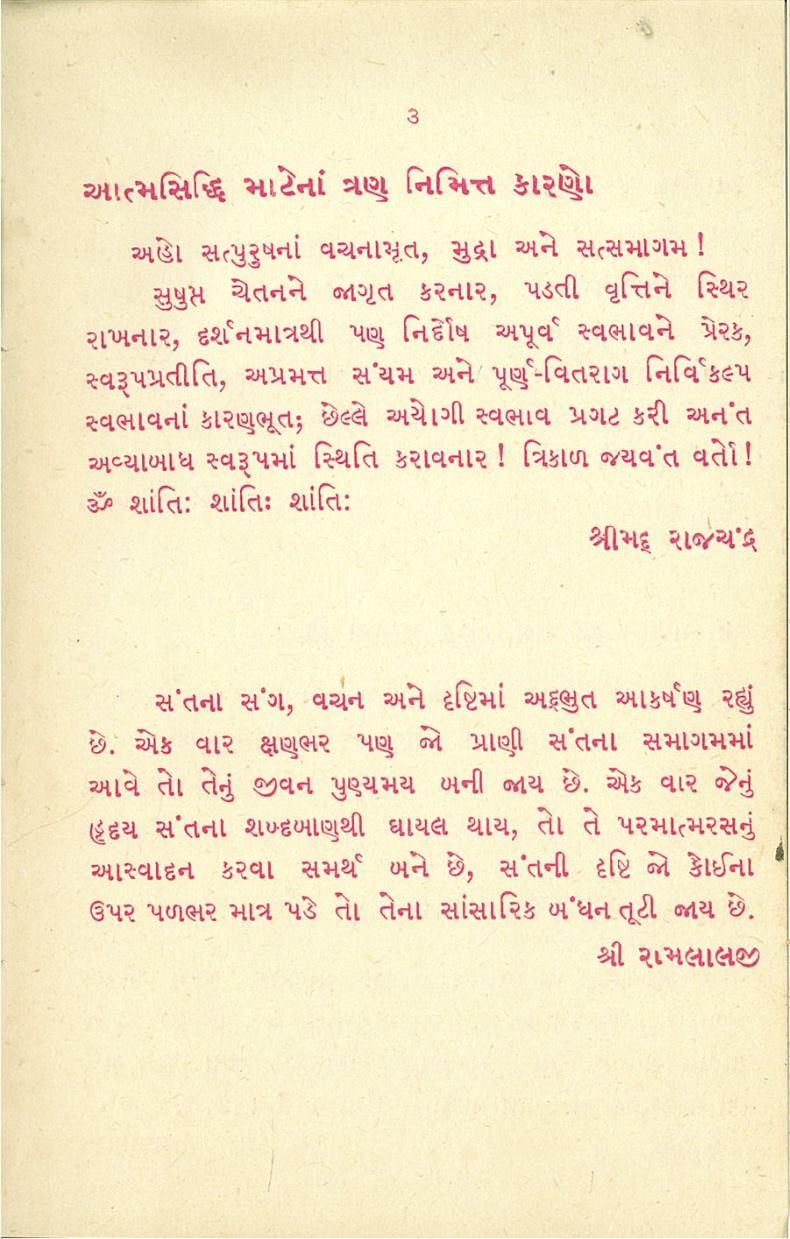 ૩
આત્મસિદ્ધિ માટેનાં ત્રણ નિમિત્ત કારણો
અહો સત્પુરુષનાં વચનામૃત, મુદ્રા અને સત્સમાગમ !
સુષુપ્ત ચેતનને જાગૃત કરનાર, પડતી વૃત્તિને સ્થિર
રાખનાર, દર્શનમાત્રથી પણ નિર્દોષ અપૂર્વ સ્વભાવને પ્રેરક,
સ્વરૂપપ્રતીતિ, અપ્રમત્ત સંયમ અને પૂર્ણ-વિતરાગ નિર્વિકલ્પ
સ્વભાવનાં કારણભૂત; છેલ્લે અયોગી સ્વભાવ પ્રગટ કરી અનંત
અવ્યાબાધ સ્વરૂપમાં સ્થિતિ કરાવનાર ! ત્રિકાળ જયવંત વર્તો !
ૐ શાંતિઃ શાંતિઃ શાંતિઃ
શ્રીમદ્ રાજચંદ્ર
સંતના સંગ, વચન અને દૃષ્ટિમાં અદ્ભુત આકર્ષણ રહ્યું
છે. એક વાર ક્ષણભર પણ જો પ્રાણી સંતના સમાગમમાં
આવે તો તેનું જીવન પુણ્યમય બની જાય છે. એક વાર જેનું
હૃદય સંતના શબ્દબાણથી ઘાયલ થાય, તો તે પરમાત્મરસનું
આસ્વાદન કરવા સમર્થ બને છે, સંતની દૃષ્ટિ જો કોઈના
ઉપર પળભર માત્ર પડે તો તેના સાંસારિક બંધન તૂટી જાય છે.
શ્રી રામલાલજી